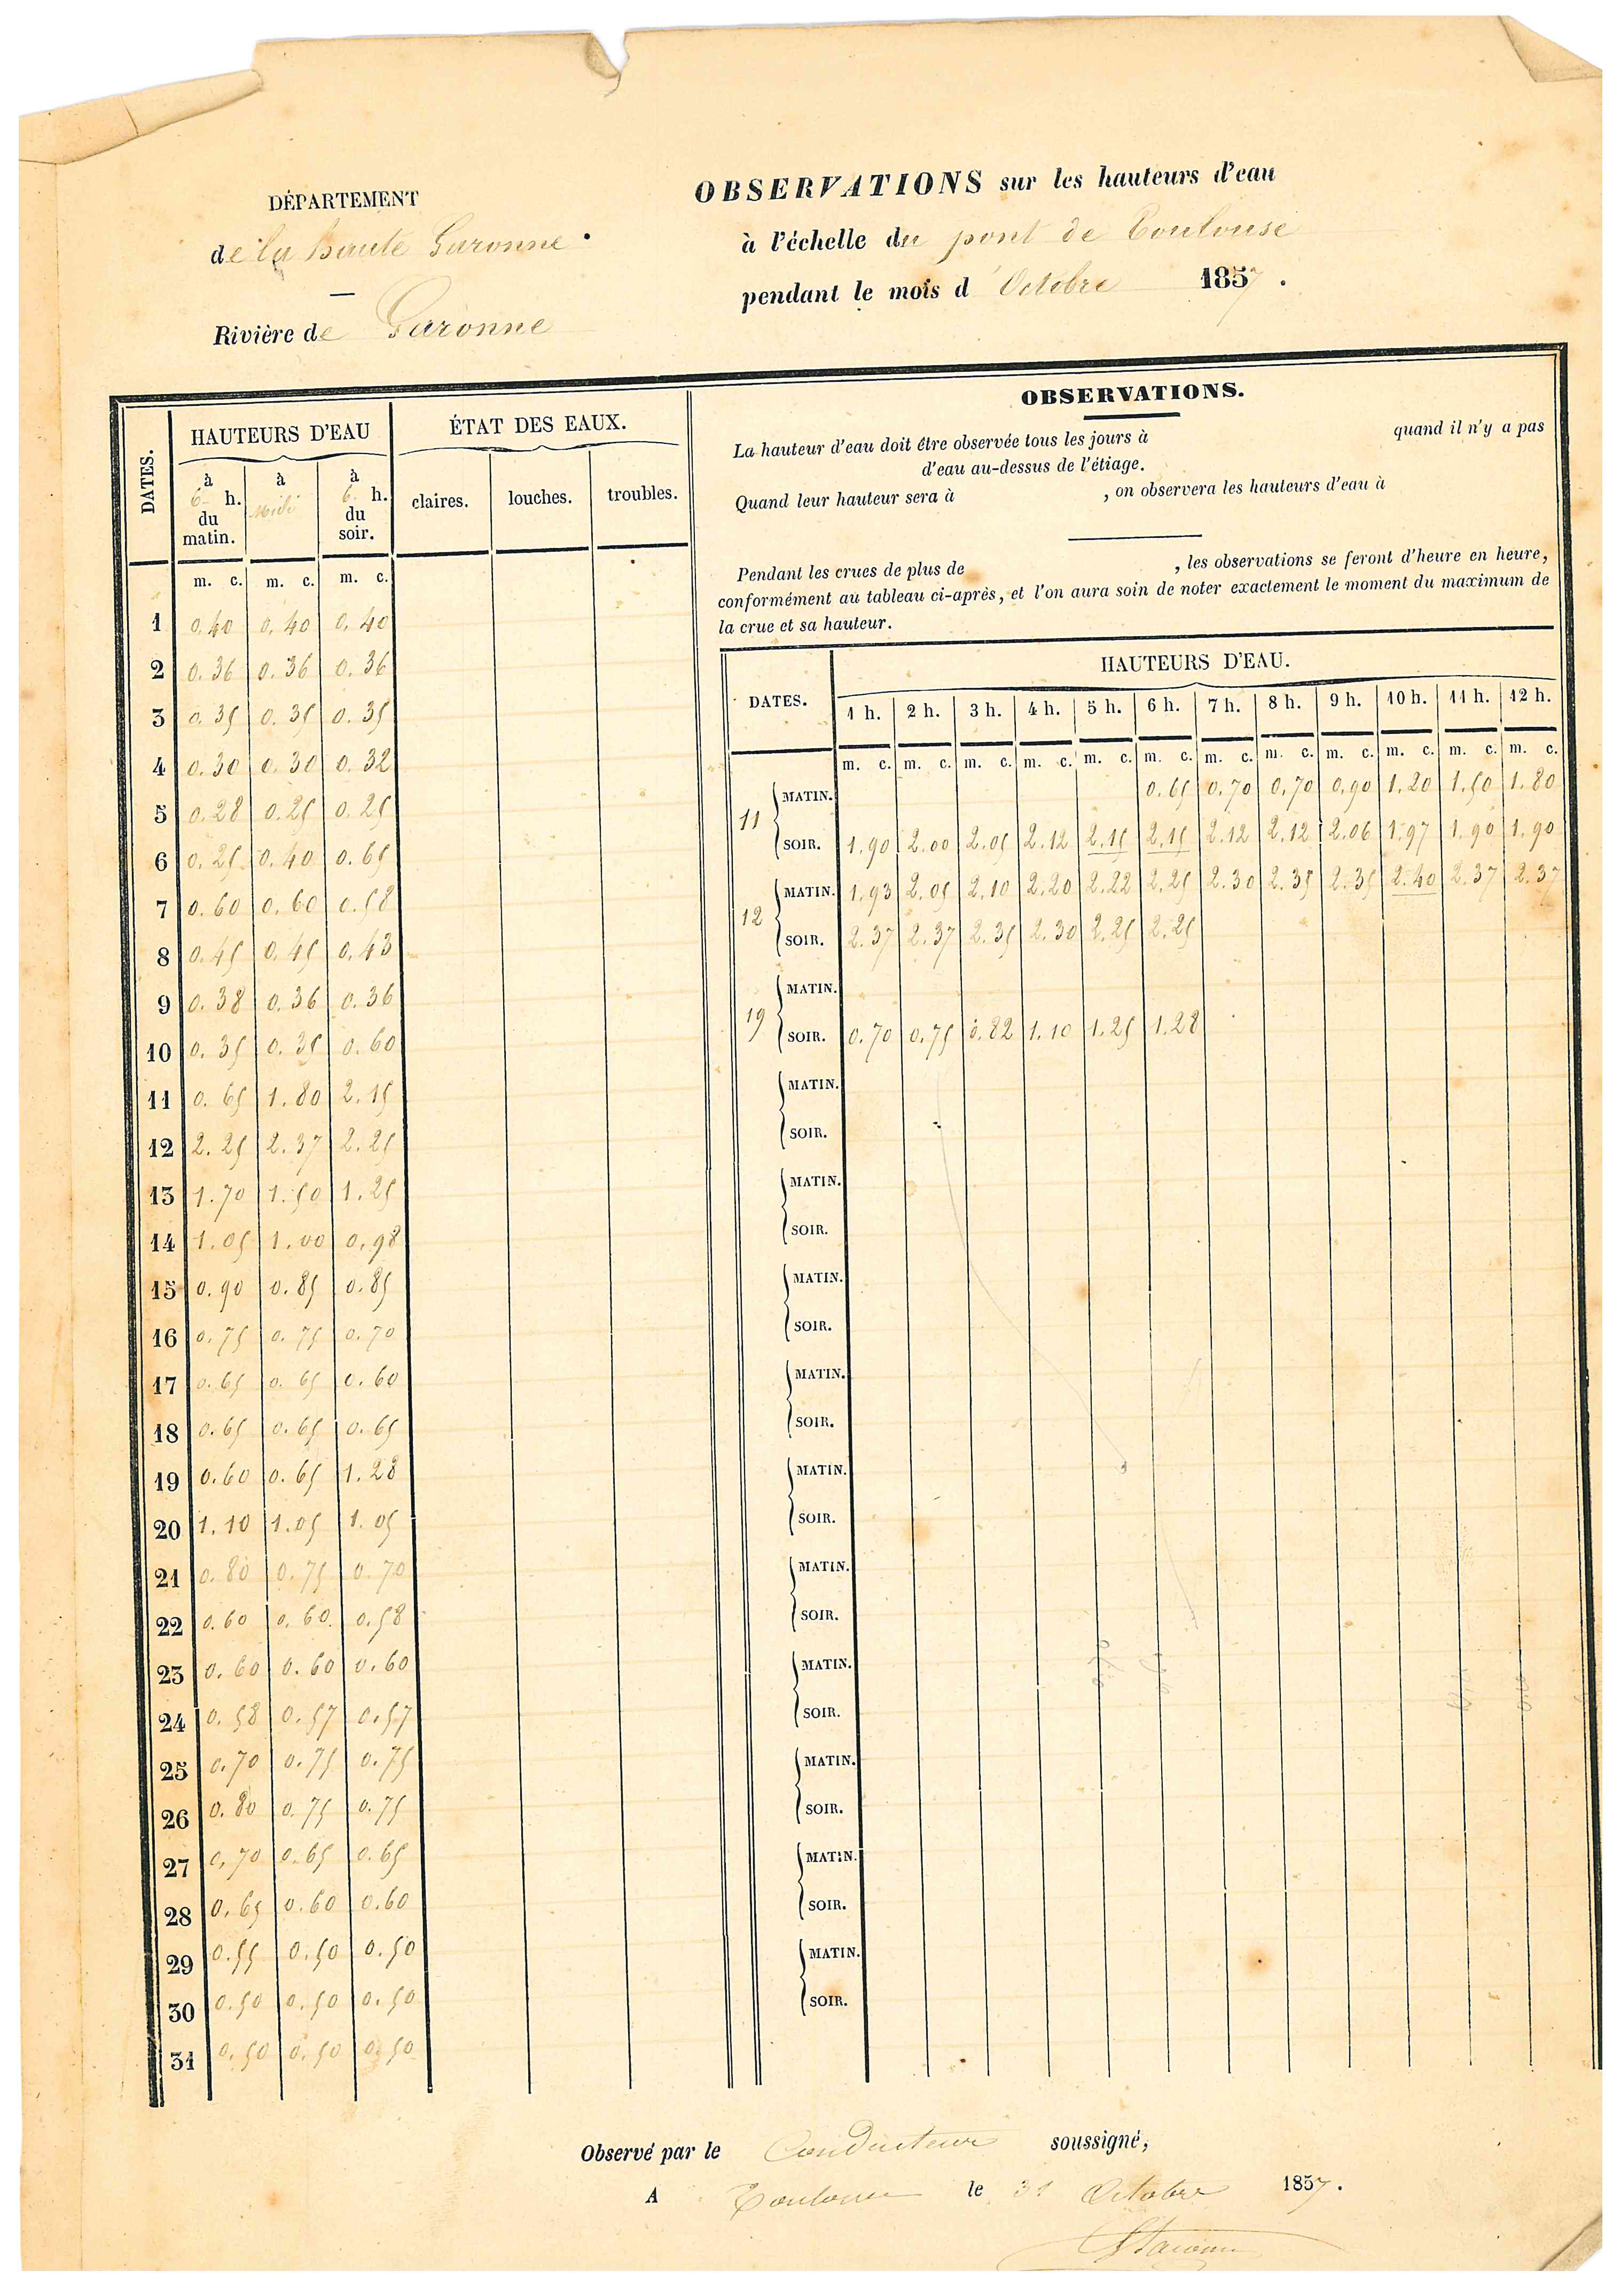 DÉPARTEMENT
de la haute Garonne.
Rivière de Garonne
OBSERVATIONS sur les hauteurs d'eau
à l'échelle du pont de Toulouse
pendant le mois d'Octobre 1857.
DATES. HAUTEURS D'EAU ÉTAT DES EAUX.
à 6 h. du matin. à Midi à 6 h. du soir. claires. louches. troubles.
m. c. m. c. m. c.
1 0.40 0.40 0.40
2 0.36 0.36 0.36
3 0.35 0.35 0.35
4 0.30 0.30 0.32
5 0.28 0.25 0.25
6 0.25 0.40 0.65
7 0.60 0.60 0.58
8 0.45 0.45 0.43
9 0.38 0.36 0.36
10 0.35 0.35 0.60
11 0.65 1.80 2.15
12 2.25 2.37 2.25
13 1.70 1.50 1.25
14 1.05 1.00 0.98
15 0.90 0.85 0.85
16 0.75 0.75 0.70
17 0.65 0.65 0.60
18 0.65 0.65 0.65
19 0.60 0.65 1.28
20 1.10 1.05 1.05
21 0.80 0.75 0.70
22 0.60 0.60 0.58
23 0.60 0.60 0.60
24 0.58 0.57 0.57
25 0.70 0.75 0.75
26 0.80 0.75 0.75
27 0.70 0.65 0.65
28 0.65 0.60 0.60
29 0.55 0.50 0.50
30 0.50 0.50 0.50
31 0.50 0.50 0.50
OBSERVATIONS.
La hauteur d'eau doit être observée tous les jours à quand il n'y a pas
d'eau au-dessus de l'étiage.
Quand leur hauteur sera à , on observera les hauteurs d'eau à
Pendant les crues de plus de , les observations se feront d'heure en heure,
conformément au tableau ci-après, et l'on aura soin de noter exactement le moment du maximum de
la crue et sa hauteur.
DATES. HAUTEURS D'EAU.
1 h. 2 h. 3 h. 4 h. 5 h. 6 h. 7 h. 8 h. 9 h. 10 h. 11 h. 12 h.
m. c. m. c. m. c. m. c. m. c. m. c. m. c. m. c. m. c. m. c. m. c. m. c.
11 MATIN. 0.65 0.70 0.70 0.90 1.20 1.50 1.80
SOIR. 1.90 2.00 2.05 2.12 2.15 2.15 2.12 2.12 2.06 1.97 1.90 1.90
12 MATIN. 1.93 2.05 2.10 2.20 2.22 2.25 2.30 2.35 2.35 2.40 2.37 2.37
SOIR. 2.37 2.37 2.35 2.30 2.25 2.25
19 MATIN.
SOIR. 0.70 0.75 0.82 1.10 1.25 1.28
MATIN.
SOIR.
MATIN.
SOIR.
MATIN.
SOIR.
MATIN.
SOIR.
MATIN.
SOIR.
MATIN.
SOIR.
MATIN.
SOIR.
MATIN.
SOIR.
MATIN.
SOIR.
MATIN.
SOIR.
Observé par le Conducteur soussigné,
A Toulouse le 31 Octobre 1857.